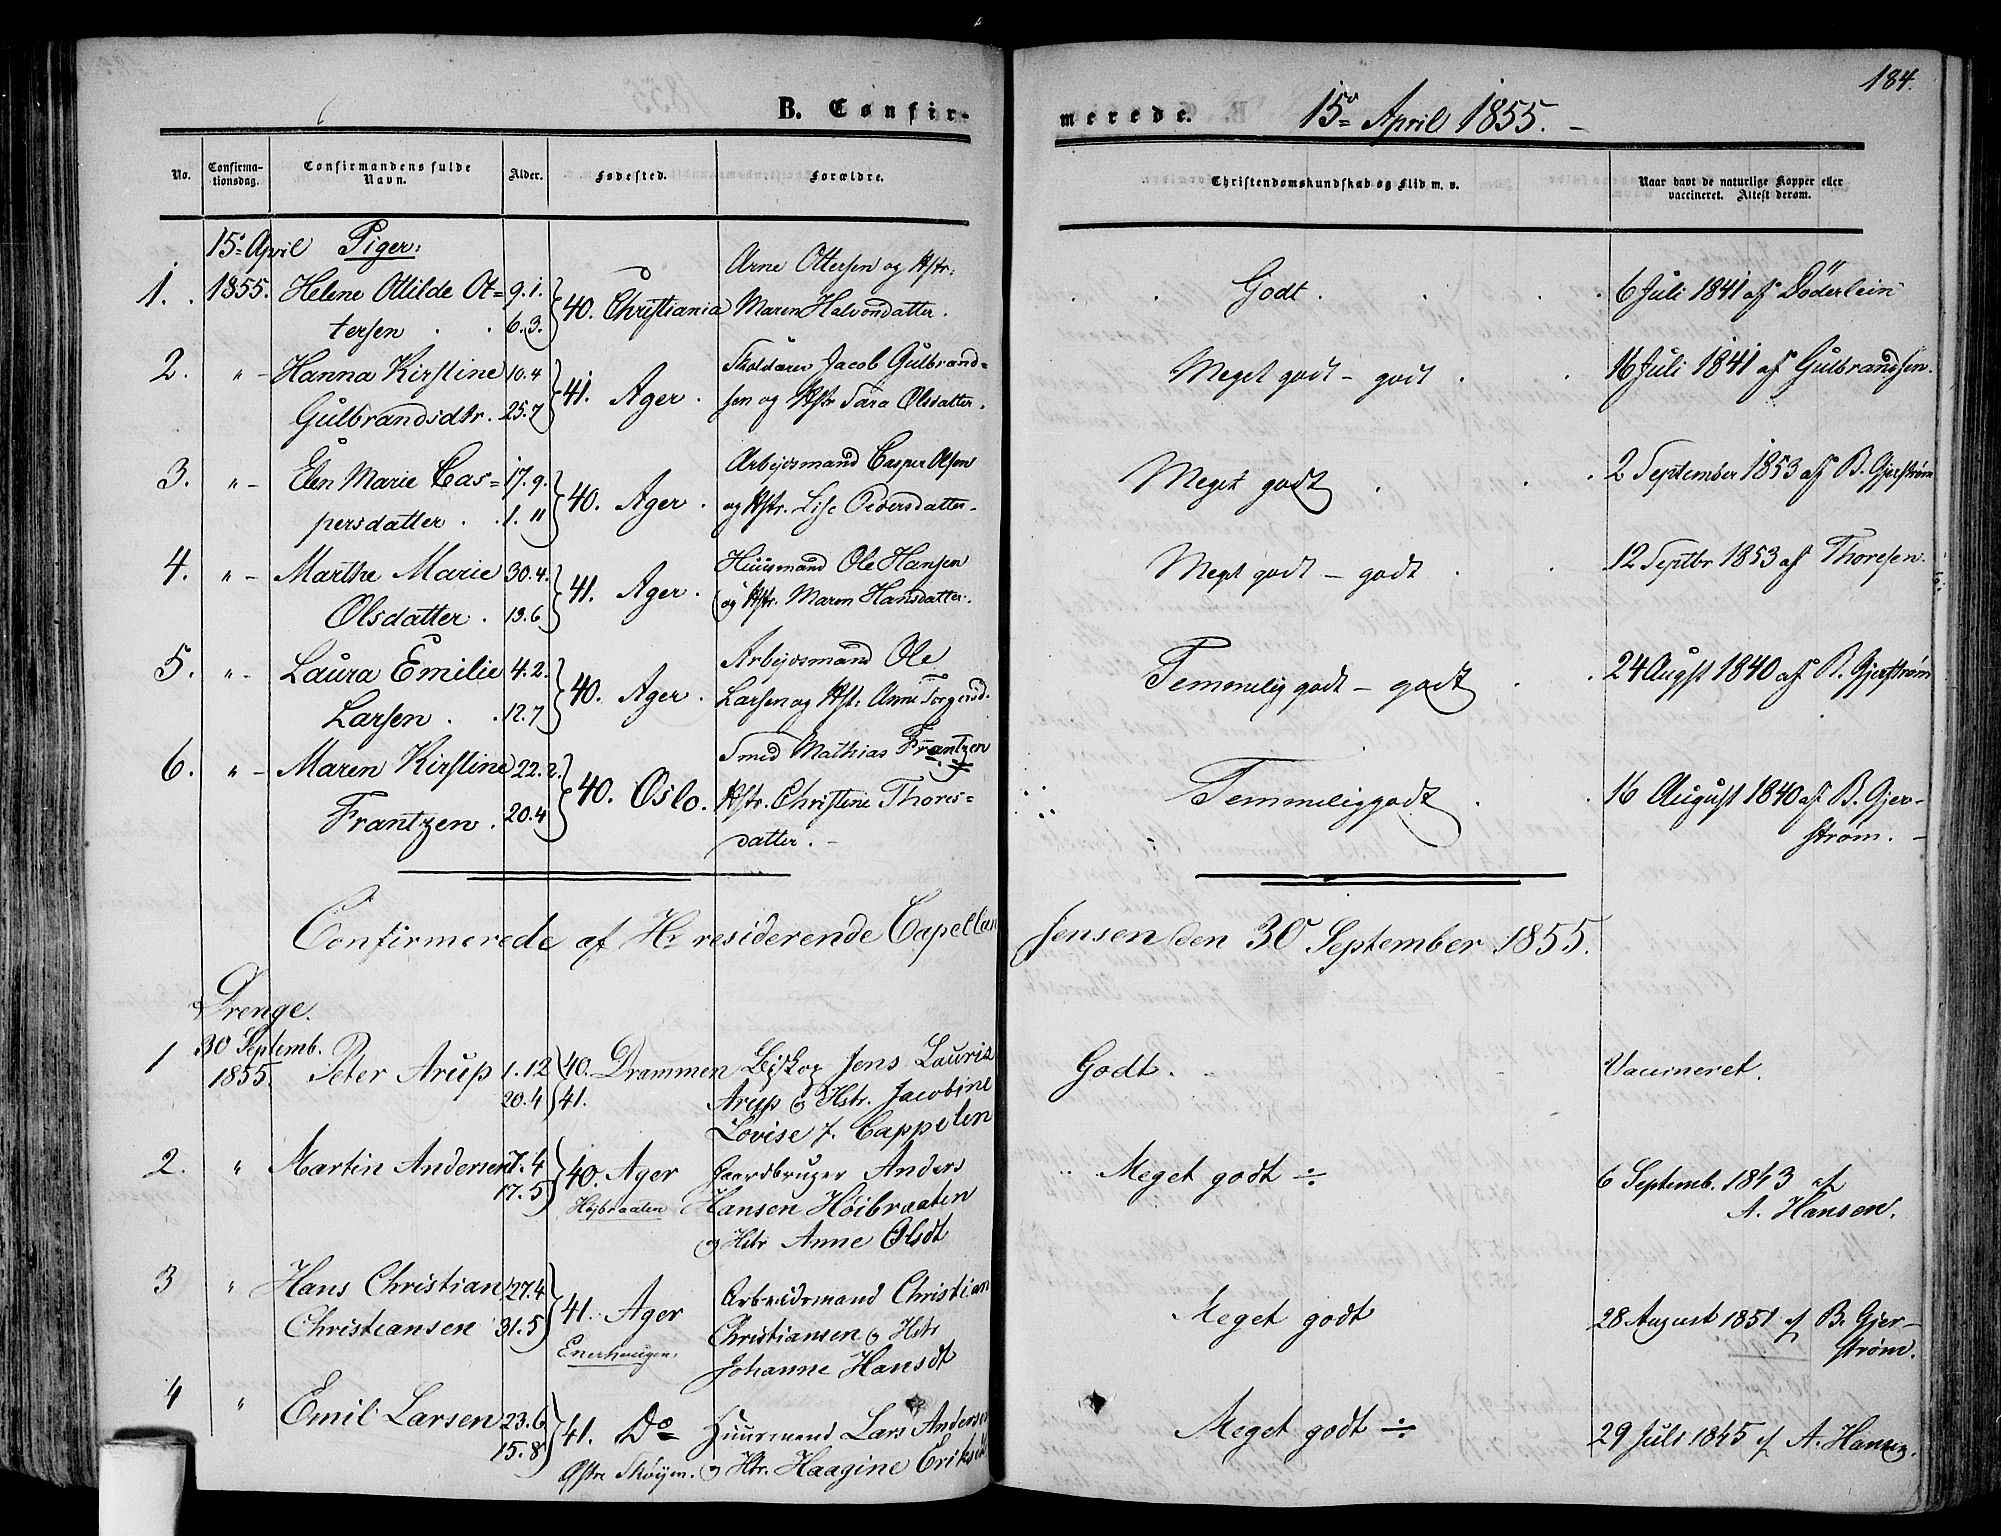 184.
B. Confir- merede. 15de April 1855.
No. Confirma- Confirmandens fulde Alder. Fødested. Forældre. Christendomskundskab og Flid m. v. Naar havt de naturlige Kopper eller
tionsdag. Navn. vaccineret. Attest derom.
15de April Piger:
Arne Ottersen og Hstr.
1. 1855. Helene Otilde Ot= 9.1. 40. Christiania Maren Halvorsdatter. Godt. 6 Juli 1841 af Döderlein
tersen 6.3.
2. " Hanna Kirstine 10.4 Jacob Gulbrand= Meget godt - godt 16 Juli 1841 af Gulbrandsen.
Gulbrandsdtr. 25.7 41. Ager. sen og Hstr Sara Olsdatter.
3. " Elen Marie Cas= 17.9. Arbejdsmand Casper Olsen Meget godt 2 September 1853 af B. Gjerstrøm
persdatter 1.11 40. Ager. og Hstr. Lise Pedersdatter.
4. " Marthe Marie 30.4. Huusmand Ole Hansen Meget godt - godt 12 Septbr 1853 af Thoresen.
Olsdatter. 13.6 41. Ager. og Hstr. Maren Hansdatter.
5. " Laura Emilie 4.2. Arbejdsmand Ole Temmelig godt - godt 24 August 1840 af B. Gjerstrøm
Larsen 12.7 40. Ager. Larsen og Hstr. Anne Torgersd.
6. " Maren Kirstine 22.2. Smed Mathias Frantzen Temmelig godt 16 August 1840 af B. Gjer-
Frantzen. 20.4 40. Oslo. Hstr. Christine Thores= strøm.
datter.
Confirmerede af Hr residerende Capellan Jensen den 30 September 1855.
Drenge.
30 Septemb.
1 1855. Peter Arup 1.12 40. Drammen Biskop Jens Lauritz Godt. Vaccineret.
20.4 41. Arup og Hstr. Jacobine
Lovise f. Cappelen
2. " Martin Andersen 7.4 40. Ager Gaardbruger Anders Meget godt ÷ 6 Septemb. 1843 af
17.5 Høibraaten Hansen Høibraaten A. Hansen.
og Hstr Anne Olsdt
3 " Hans Christian 27.4 41. Ager Arbeidsmand Christian Meget godt 28 August 1851 af B. Gjer-
Christiansen 31.5 Enerhaugen. Christiansen og Hstr strøm.
Johanne Hansdt
4 " Emil Larsen 23.6 41. Do Huusmand Lars Andersen Meget godt ÷ 29 Juli 1845 af A. Hansen.
15.8 Østre Skøyen. og Hstr. Haagine Eriksd